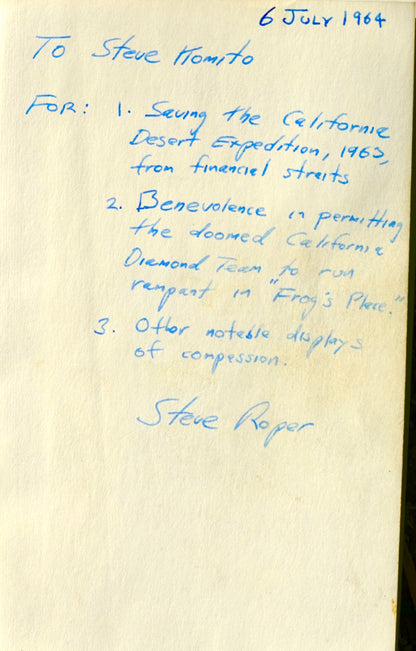 6 JULY 1964
To Steve Komito
FOR: 1. Saving the California
Desert Expedition, 1963,
from financial straits
2. Benevolence in permitting
the doomed California
Diamond Team to run
rampant in "Frog's Place."
3. Other notable displays
of compassion.
Steve Roper